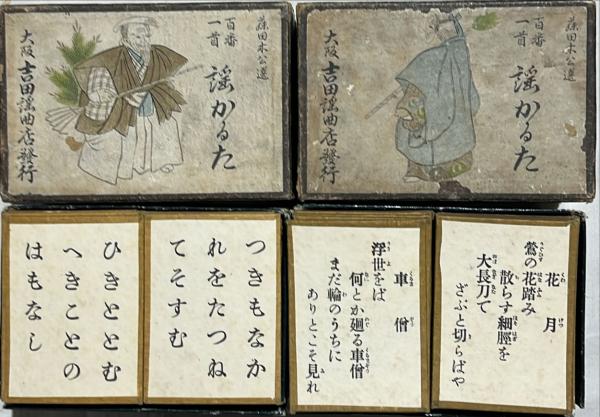 藤田木公選
百番
一首
謡かるた
大阪吉田謡曲店發行
藤田木公選
百番
一首
謡かるた
大阪吉田謡曲店發行
花月
鶯の花踏み
散らす細脛を
大長刀て
ざぶと切らばや
車僧
浮世をば
何とか廻る車僧
まだ輪のうちに
ありとこそ見れ
つきもなか
れをたつね
てそすむ
ひきととむ
へきことの
はもなし